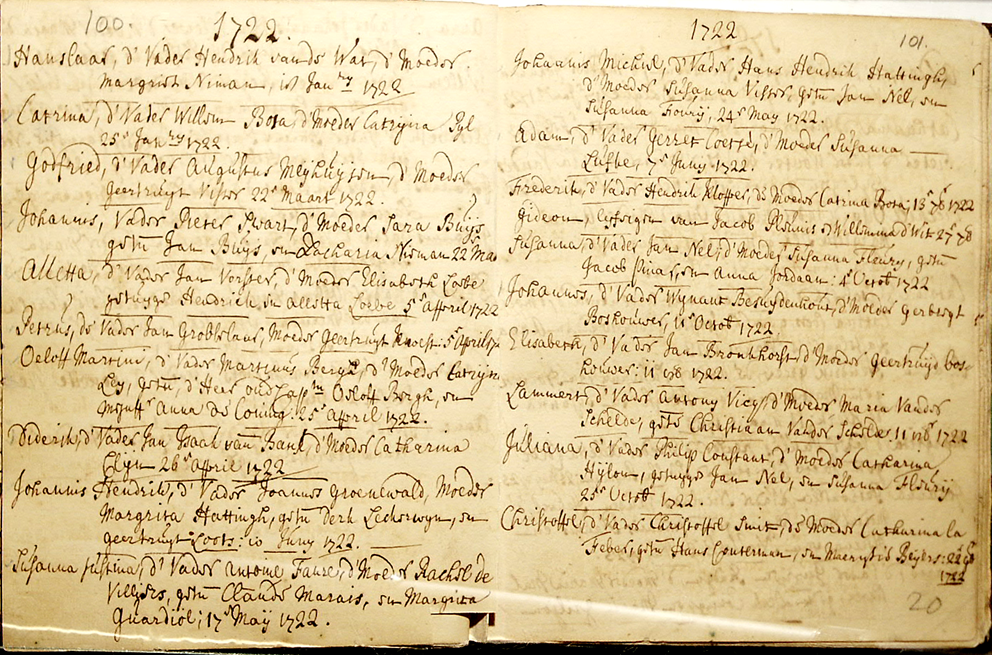 100.
1722.
Hanslaar, d' Vader Hendrik vande Wat, d' Moeder
Margriet Niman, ist Jan ry 1722
Catrina, d' Vader Willem Bota, d' Moeder Catryna Pyl
25st Jan ry 1722.
Godfried, d' Vader Augustus Meyhuysen, d' Moeder
Geertruyt Visser 22st Maart 1722.
Johannis, Vader Pieter Swart, d' Moeder Sara Buys,
getu Jan Buys, en Zacharia Nieman 22 Maa
Alletta, d' Vader Jan Vorster, d' Moeder Elisabeth Loebe
getuyge Hendrick en Alletta Loebe 5st Affrill 1722
Petrus, de Vader Jan Grobbelaar, Moeder Geertruyt Knoest: 5st April
Oeloff Martinus, d' Vader Martinus Bergh, d' Moeder Catryn
Ley, getu, d' Heer oud Capptn Oeloff Bergh, en
Mejuffr Anna De Coning: 25st Affrill 1722.
Diderik, d' Vader Jan Isaak van Bank, d' Moeder Catharina
Clyn 26st Affrill 1722
Johannis Hendrik, d' Vader Joannes Groenewald, Moeder
Margrita Hattingh, getu Derk Lecherwyn, en
geertruyt Loots: 10 Juny 1722.
Susanna Justina, d' Vader Antonie Faure, d' Moeder Rachel de
Villiers, getu Claude Marais, en Margrita
Guardiol; 17st Maij 1722.
1722
101.
Johannis Michiel, d' Vader, Hans Hendrik Hattingh,
d' Moeder Susanna Visser, getu Jan Nel, en
Susanna Fourij, 24st May 1722.
Adam, d' Vader Gerret Coetsé, d' Moeder Susanna
Lufbe, 7st Juny 1722.
Frederik, d' Vader Hendrik Klopper, de Moeder Catrina Bota; 13st 7b 1722
Gideon, lyfeigen van Jacob Plomis & Willemina d' Wit 27st 7b
Susanna, d' Vader Jan Nel, d' Moeder Susanna Fleury, getu
Jacob Pinar, en Anna Jordaan: 4st Octob 1722
Johannes, d' Vader Wynant Besuydenhout, d' Moeder Gerbregt
Boshouwer, 11st Octob 1722
Elisabeth, d' Vader Jan Bronkhorst, d' Moeder Geertruyd bos-
houwer: 11 8b 1722.
Lammert, d' Vader Antony Vicy, d' Moeder Maria Vander
Schelde, gets Christiaan Vander Schelde: 11 8b 1722
Juliana, d' Vader Philip Constant, d' Moeder Catharina
Hylon, getuyge Jan Nel, en Susanna Fleury
25st Octob 1722.
Christoffel, d' Vader Christoffel Smit, de Moeder Catharina la
Feber, getu Hans Conterman, en Maeryt ib Beyers: 22st
1722
20